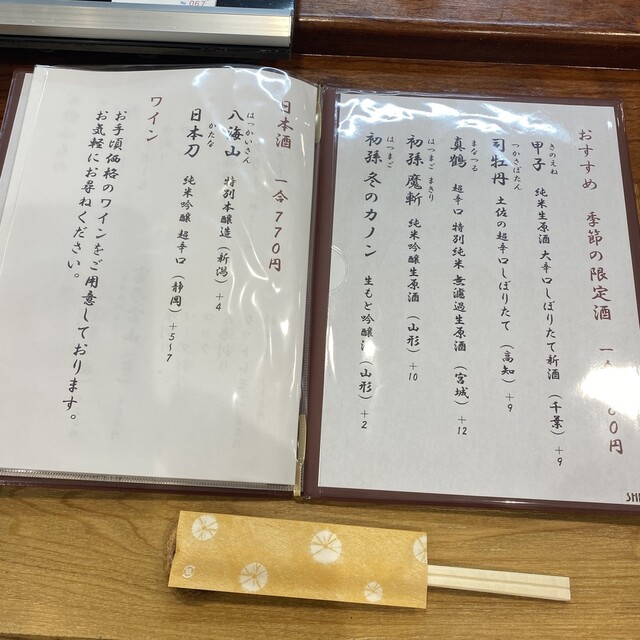 おすすめ 季節の限定酒 一合
0円
きのえね
甲子 純米生原酒 大辛口しぼりたて新酒 (千葉) +9
つかさぼたん
司牡丹 土佐の超辛口しぼりたて (高知) +9
まなつる
真鶴 超辛口 特別純米 無濾過生原酒 (宮城) +12
はつまご まきり
初孫 魔斬 純米吟醸生原酒 (山形) +10
はつまご
初孫 冬のカノン 生もと吟醸 (山形) +2
日本酒 一合770円
はっかいさん
八海山 特別本醸造 (新潟) +4
かたな
日本刀 純米吟醸 超辛口 (静岡) +5~7
ワイン
お手頃価格のワインをご用意しております。
お気軽にお尋ねください。
№ 067